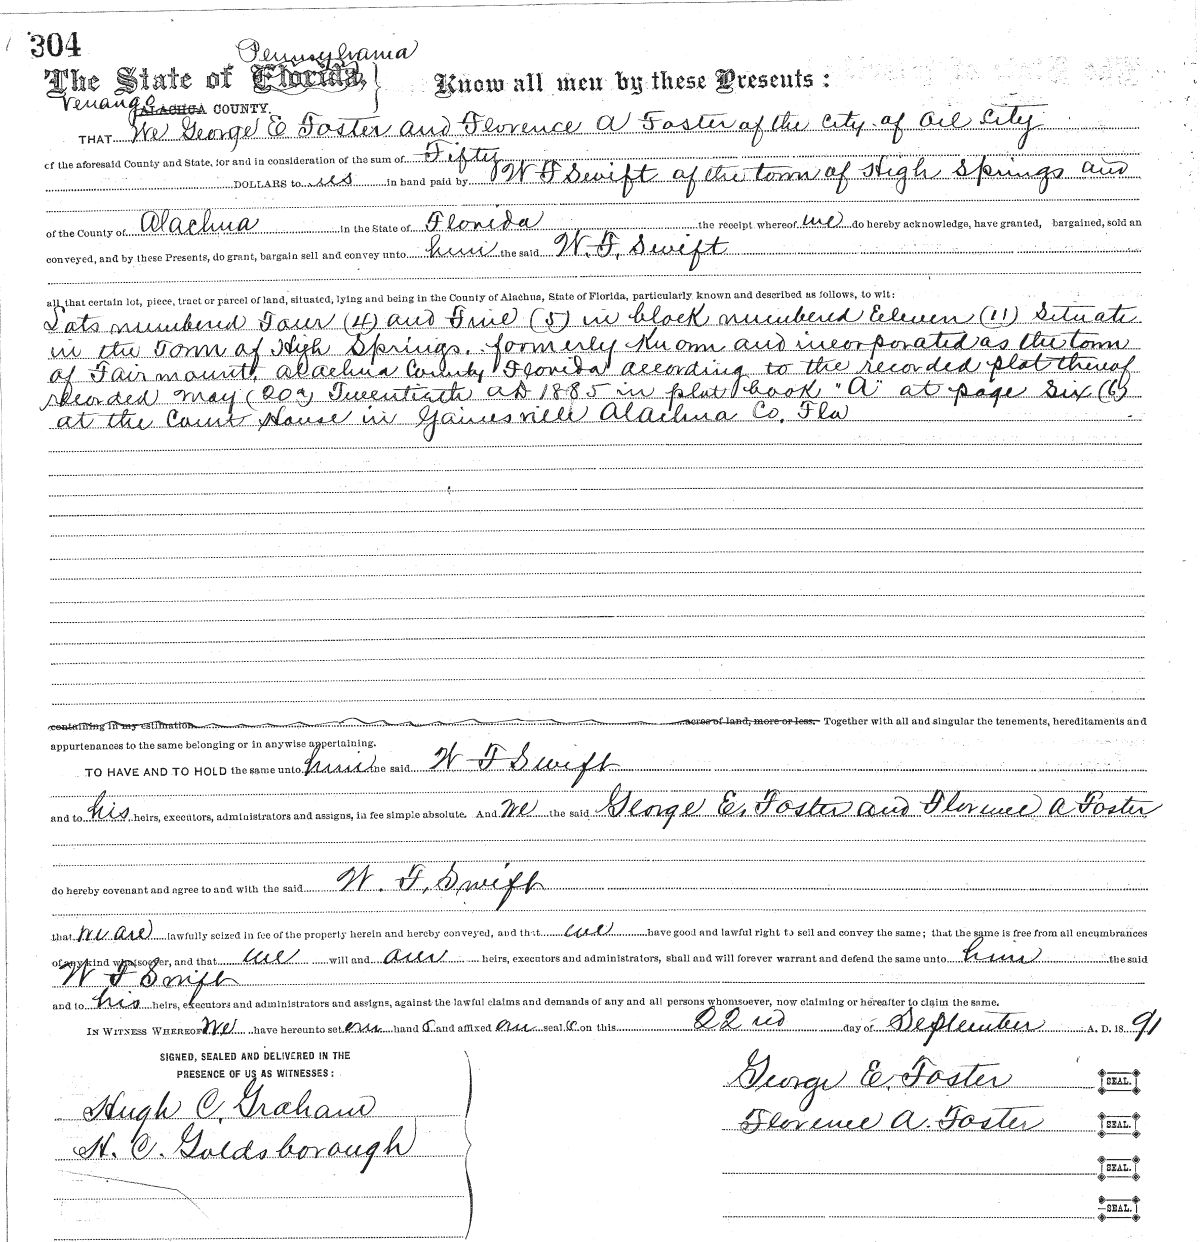 304
Pennsylvania
The State of Florida, Know all men by these Presents:
Venango ALACHUA COUNTY.
THAT We George E Foster and Florence A Foster of the City of Oil City
of the aforesaid County and State, for and in consideration of the sum of Fifty
DOLLARS to us in hand paid by W F Swift of the town of High Springs and
of the County of Alachua in the State of Florida the receipt whereof we do hereby acknowledge, have granted, bargained, sold an
conveyed, and by these Presents, do grant, bargain sell and convey unto him the said W. F. Swift
all that certain lot, piece, tract or parcel of land, situated, lying and being in the County of Alachua, State of Florida, particularly known and described as follows, to wit:
Lots numbered Four (4) and Five (5) in block numbered Eleven (11) Situate
in the Town of High Springs. formerly Known and incorporated as the town
of Fairmount, Alachua County Florida according to the recorded plat thereof
recorded May (20th) Twentieth AD 1885 in plat book "A" at page Six (6)
at the Court House in Gainesville Alachua Co. Fla
containing in my estimation acres of land, more or less. Together with all and singular the tenements, hereditaments and
appurtenances to the same belonging or in anywise appertaining.
TO HAVE AND TO HOLD the same unto him the said W F Swift
and to his heirs, executors, administrators and assigns, in fee simple absolute. And We the said George E. Foster and Florence A Foster
do hereby covenant and agree to and with the said W. F. Swift
that we are lawfully seized in fee of the property herein and hereby conveyed, and that we have good and lawful right to sell and convey the same; that the same is free from all encumbrances
of any kind whatsoever, and that we will and our heirs, executors and administrators, shall and will forever warrant and defend the same unto him the said
W F Swift
and to his heirs, executors and administrators and assigns, against the lawful claims and demands of any and all persons whomsoever, now claiming or hereafter to claim the same.
IN WITNESS WHEREOF We have hereunto set our hand s and affixed our seal s on this 22nd day of September A. D. 1891
SIGNED, SEALED AND DELIVERED IN THE
PRESENCE OF US AS WITNESSES:
George E. Foster SEAL.
Hugh C. Graham
Florence A. Foster SEAL.
H. C. Goldsborough
SEAL.
SEAL.